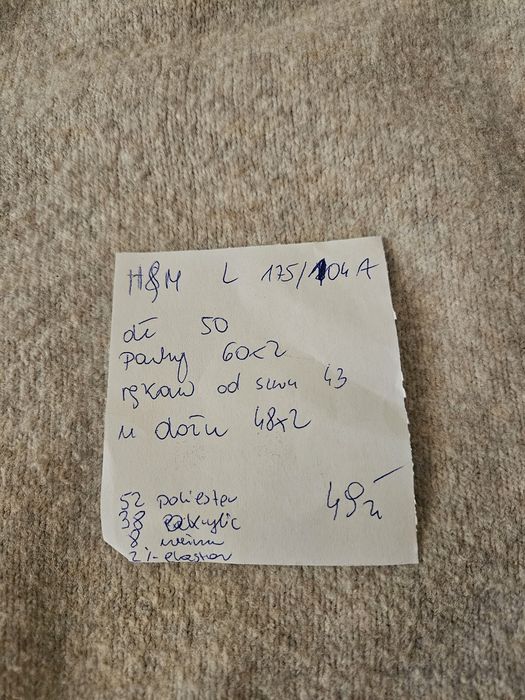 H&M L 175/104 A
dł 50
pachy 60x2
rękaw od szwu 43
u dołu 48x2
52 poliester
38 akrylic
8 wełna
2 % elastan
49zł